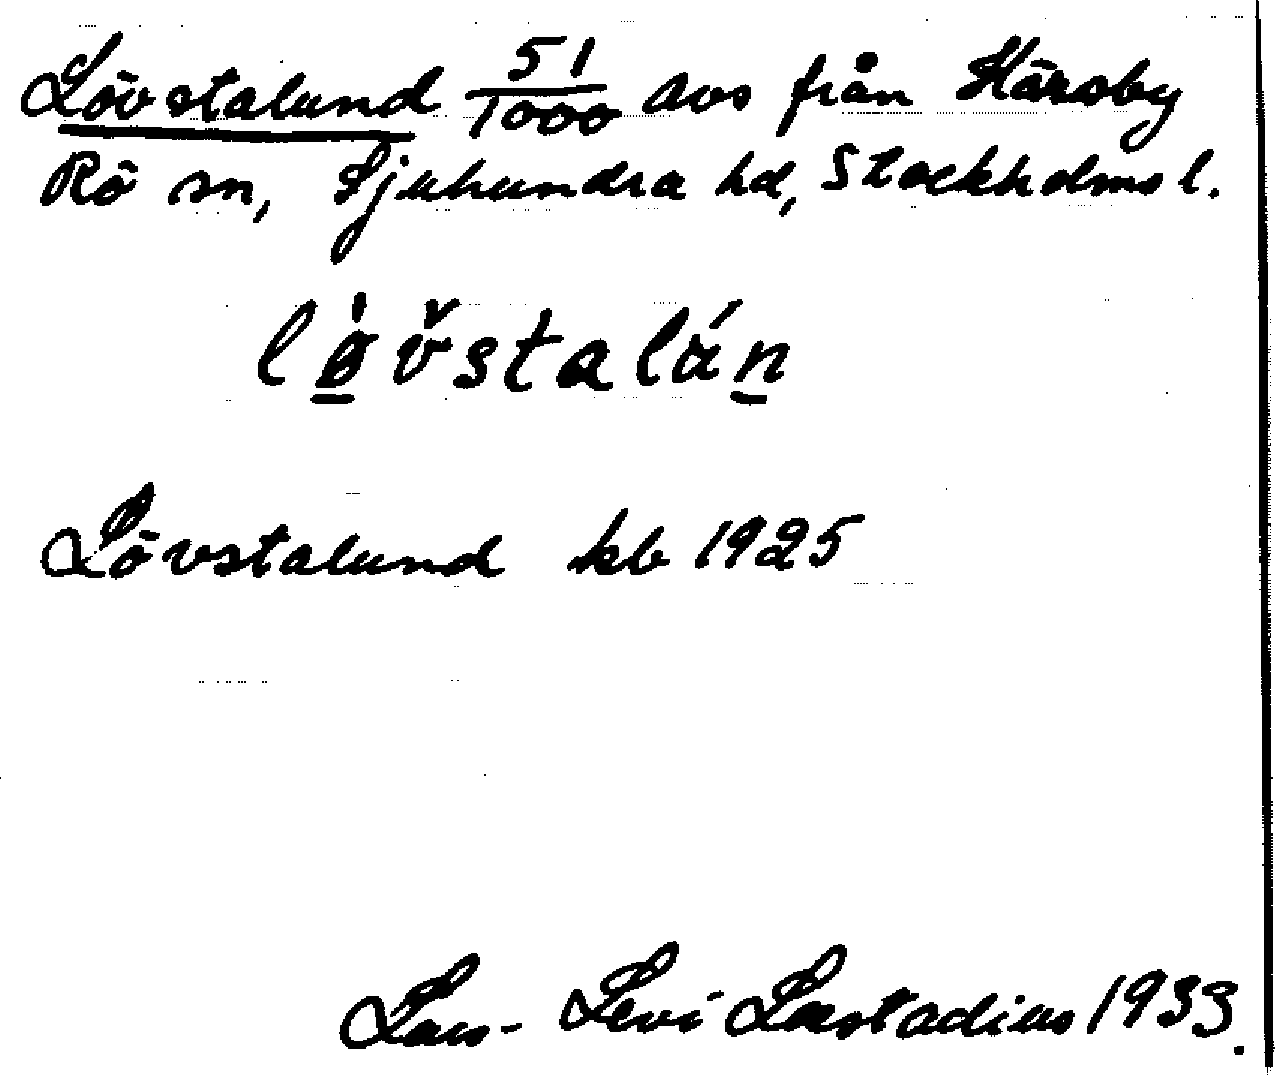 Lövstalund 51/1000 avs från Häroby
Rö sn, Sjuhundra hd, Stockholms l.
lø̠̀v̌stalán̠
Lövstalund kb 1925
Lars-Levi Læstadius 1933.